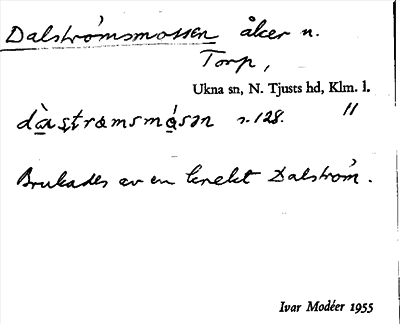 Dalströmsmossen åker n.
Torp,
Ukna sn, N. Tjusts hd, Klm. l.
s. 128. "
Brukades av en knekt Dalström.
Ivar Modéer 1955